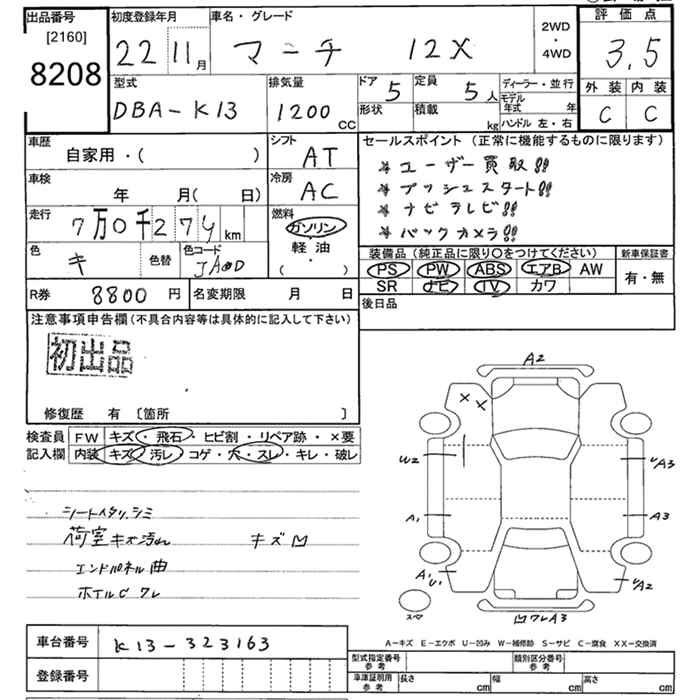 出品番号
[2160]
8208
初度登録年月
22 11月
車名・グレード
マーチ 12X
2WD
・
4WD
評価点
3.5
外装 内装
C C
型式
DBA-K13
排気量
1200 CC
ドア 5
定員 5人
形状
積載 kg
ディーラー・並行
モデル年式 年
ハンドル 左・右
車歴
自家用・( )
シフト
AT
車検
年 月( 日)
冷房
AC
走行
7万0千274km
燃料
ガソリン
軽・油
( )
色
キ
色替
色コード
R券 8800円
名変期限 月 日
セールスポイント (正常に機能するものに限り)
* ユーザー買取!!
* プッシュスタート!!
* ナビテレビ!!
* バックカメラ!!
装備品 (純正品に限り〇をつけてください)
PS PW ABS エアB AW
SR ナビ TV カワ
新車保証書
有・無
後日品
注意事項申告欄(不具合内容等は具体的に記入して下さい)
初出品
修復歴 有 [箇所 ]
検査員
記入欄
FW キズ・飛石・ヒビ割・リペア跡・×要
内装 キズ・汚レ・コゲ・穴・スレ・キレ・破レ
シートスタリ.シミ
荷室キズ汚れ キズ凹
エンドパネル曲
ホイルC ワレ
A2
X X
W2
A1
A1 U1
UA3
A3
UA2
凹ワレA3
スペア
A-キズ E-エクボ U-凹み W-補修跡 S-サビ C-腐食 XX-交換済
車台番号 K13-323163
登録番号
型式指定番号
参考
類別区分番号
参考
車庫証明用
参考
長さ cm 幅 cm 高さ cm